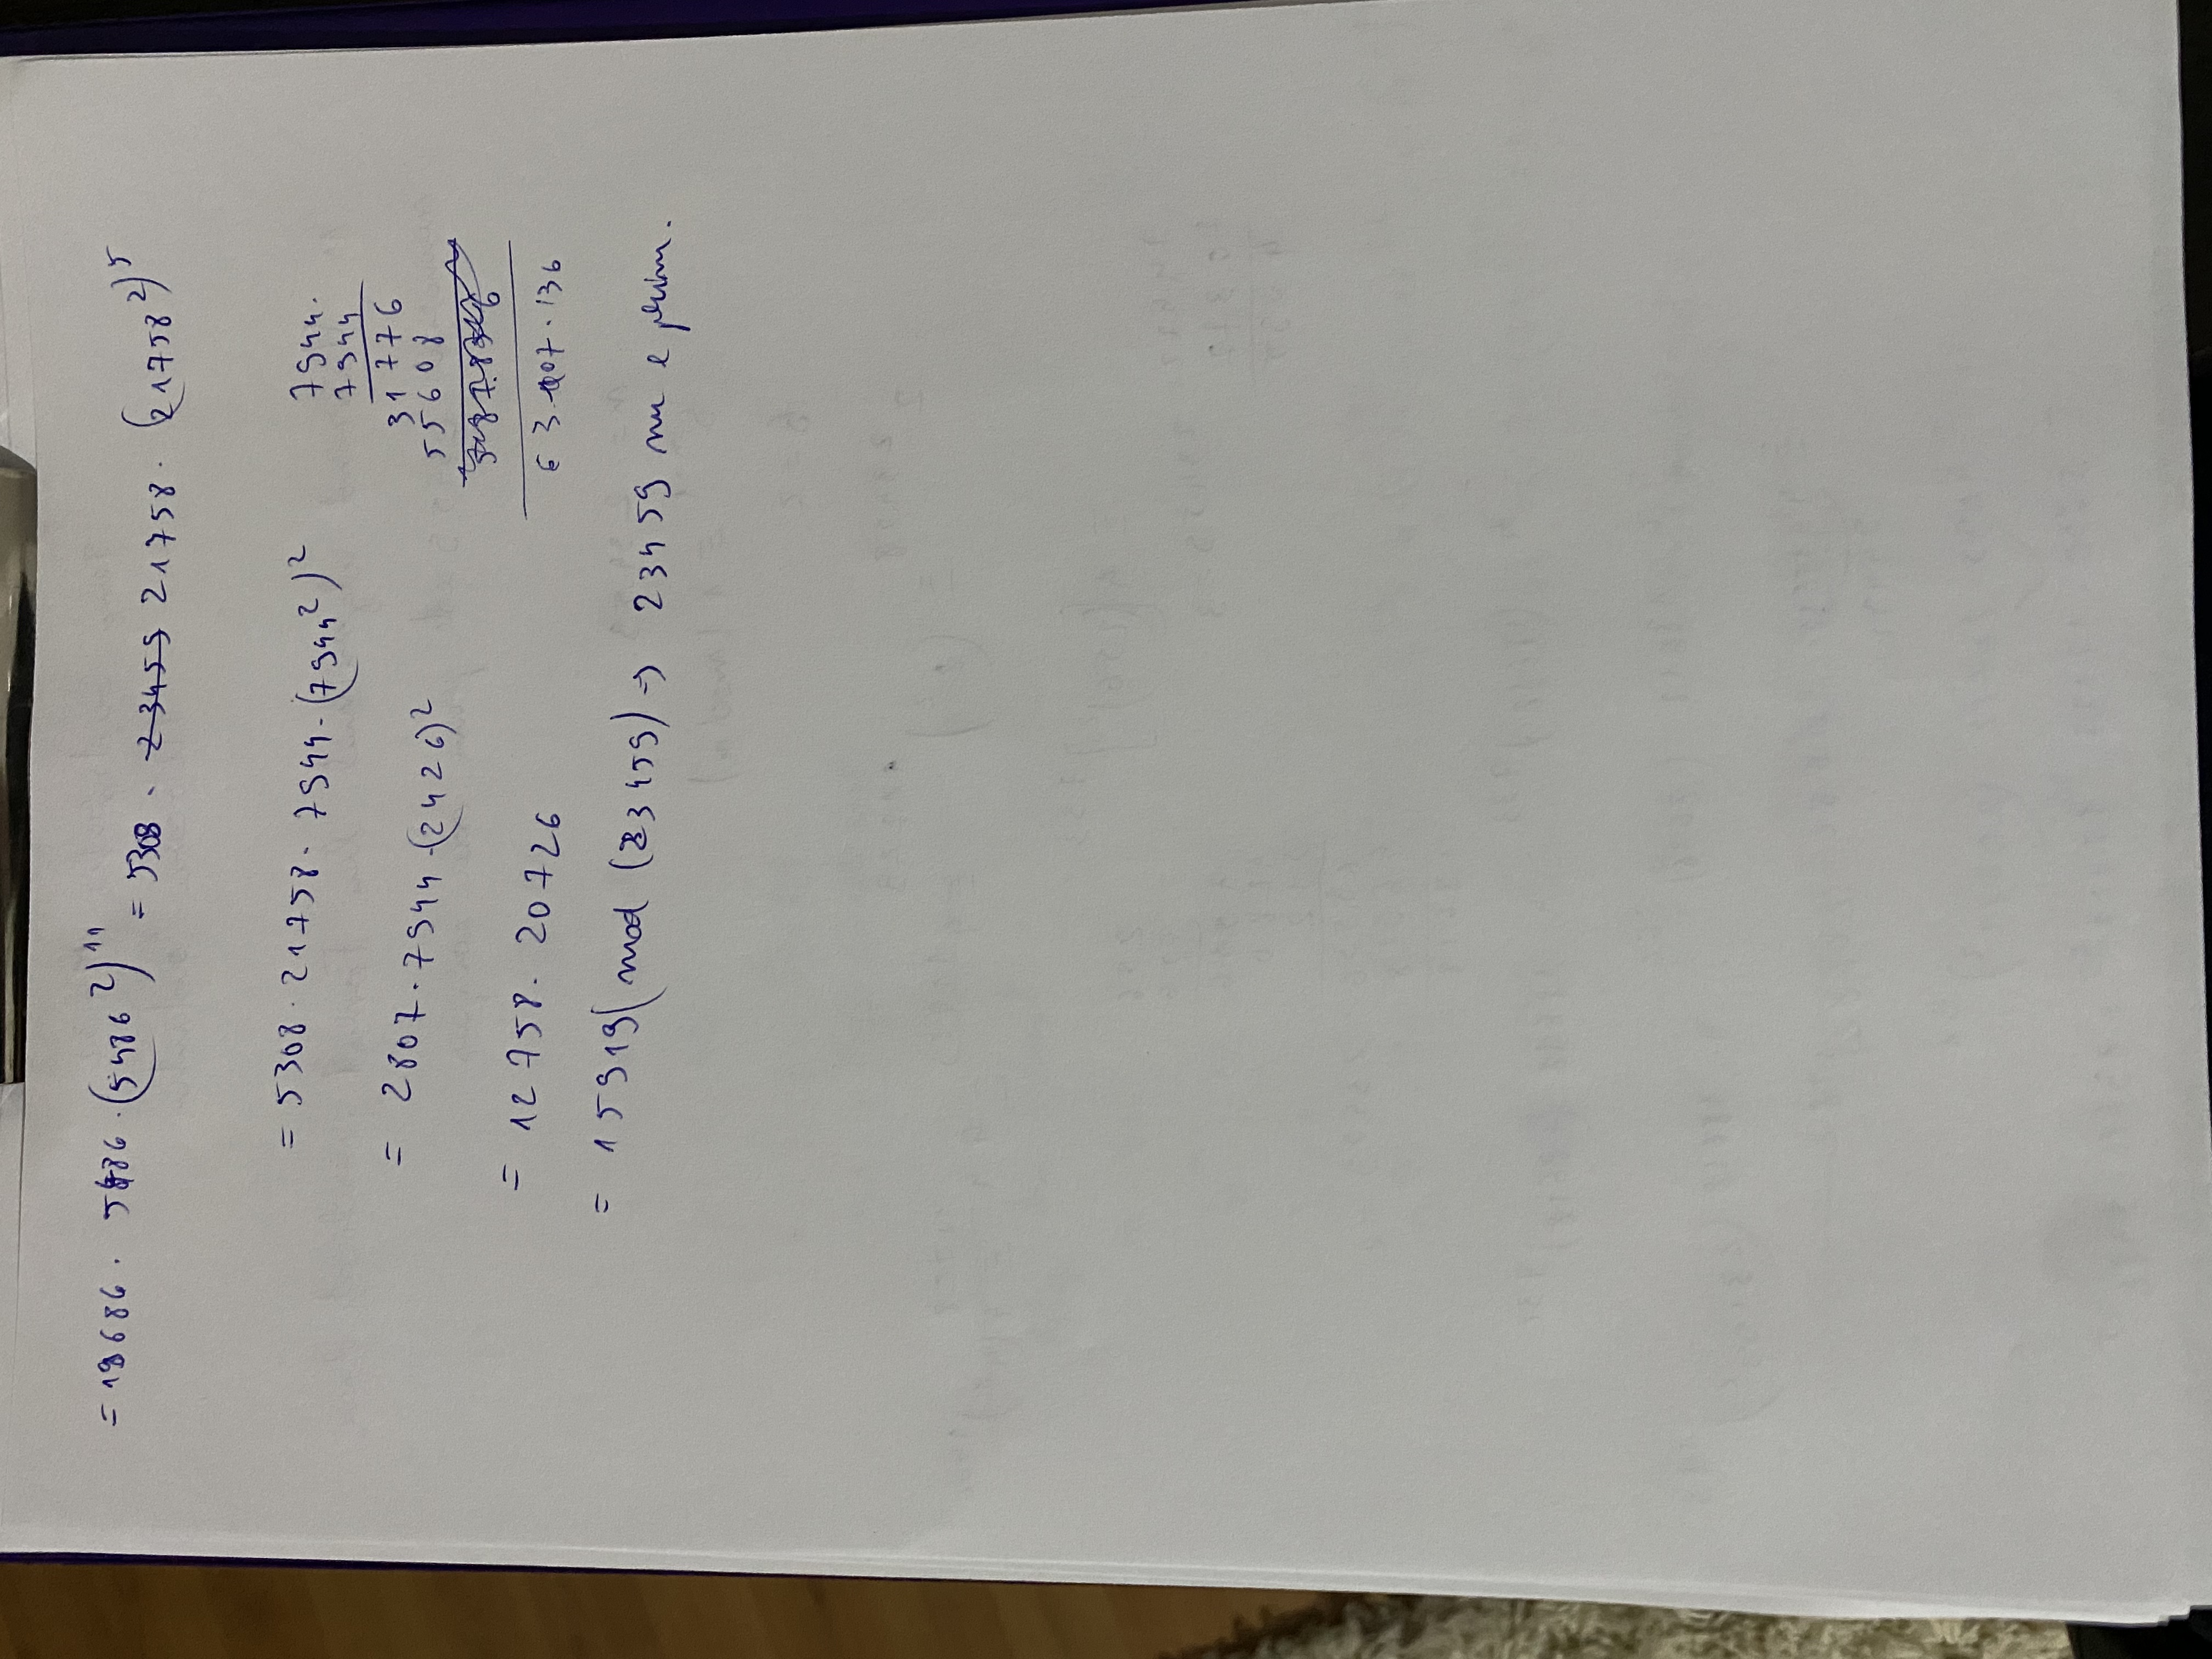 = 19686 · 5486 · (5486²)¹¹ = 5308 · 23459 21758 · (21758²)⁵
= 5308 · 21758 · 7944 · (7944²)²
= 2807 · 7944 · (2426)²
= 12758 · 20726
= 15919 (mod (23459) => 23459 nu e prim.
7944 ·
7944
31776
55608
63.107.136